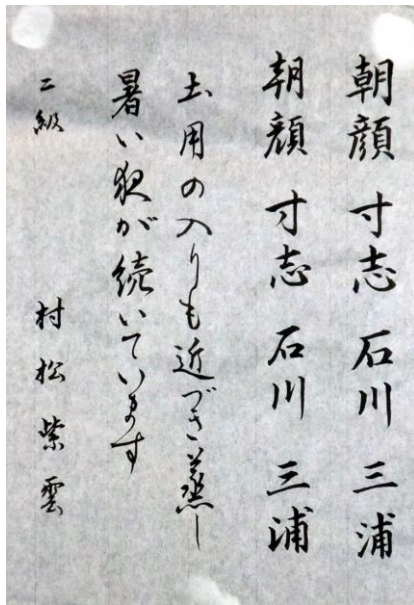 朝顔 寸志 石川 三浦
朝顔 寸志 石川 三浦
土用の入りも近づき蒸し
暑い夜が続いています
二級 村松紫雲